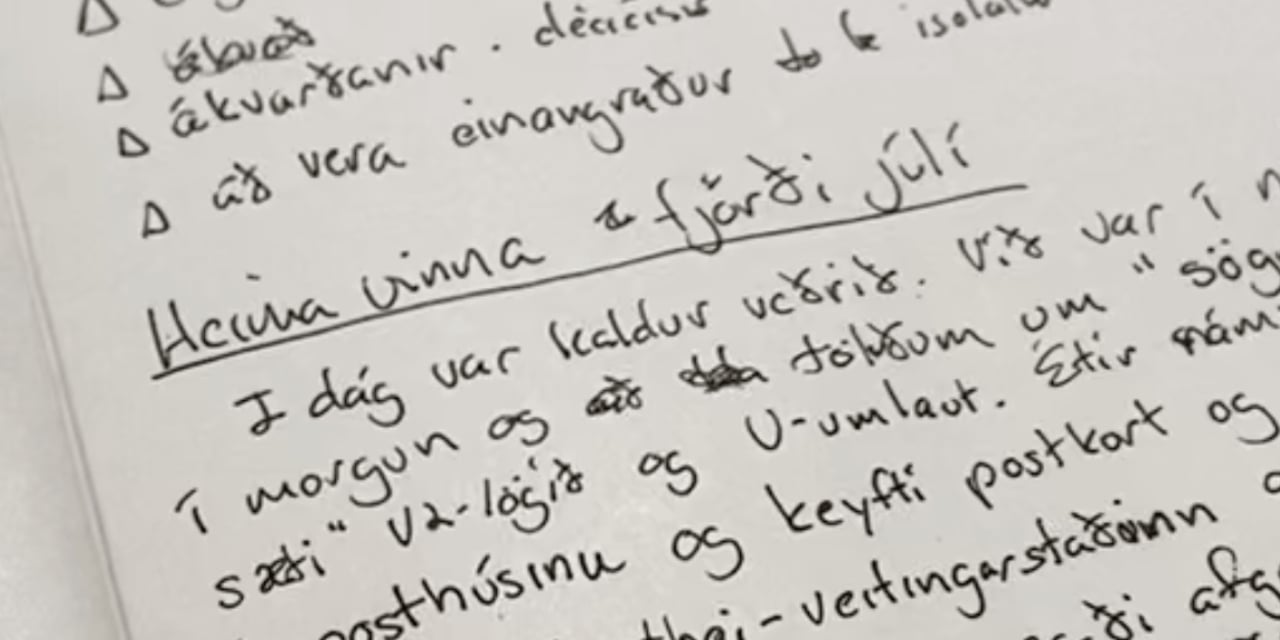 ákvarðanir . décicisu
að vera einangraður to be isolat
Heima vinna fjórði júlí
I dág var kaldur veðrið. Við var í n
í morgun og tölúðum um "sög
sæti" V2-lögið og U-umlaut. Eftir nám
posthúsinu og keyfti postkort og
thai-veitingarstaðinn